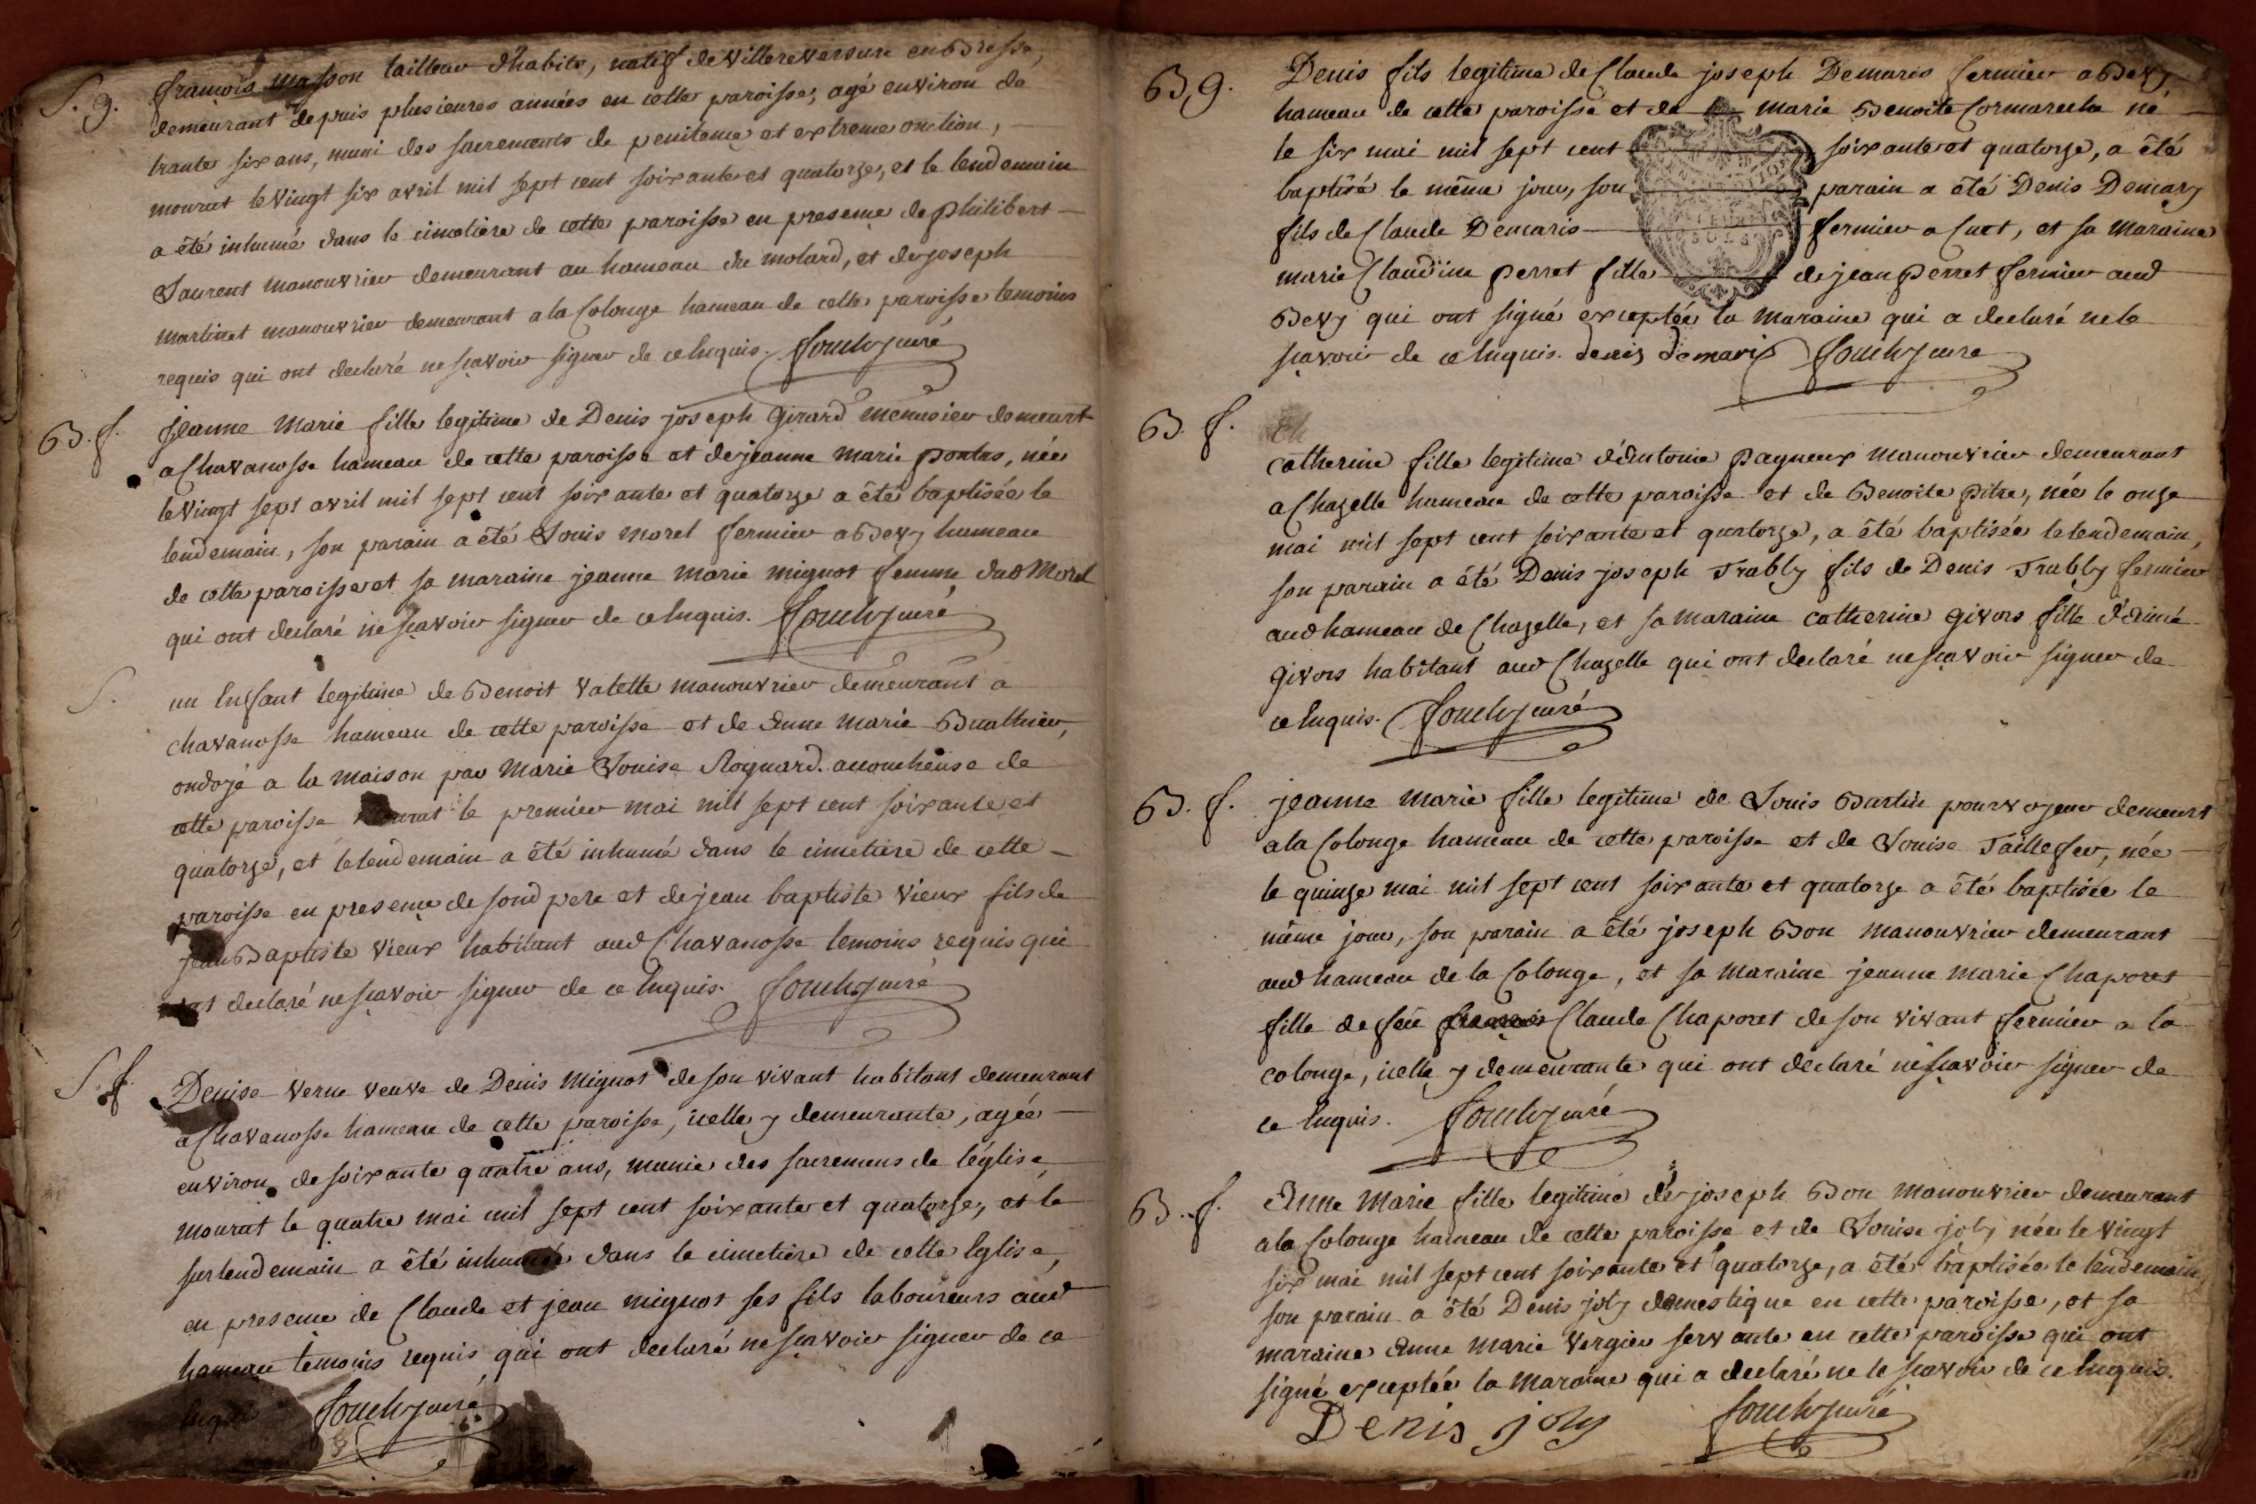 S. g. françois Masson tailleur d'habits, natif de Villereversure en Bresse,
demeurant depuis plusieures années en cette paroisse, agé environ de
trante six ans, muni des sacrements de penitence et extreme onction,
mourut le vingt six avril mil sept cent soixante et quatorze, et le lendemain
a été inhumé dans le cimetiere de cette paroisse en presence de philibert
Laurent manouvrier demeurant au hameau du molard, et de joseph
martinet manouvrier demeurant a la Colonge hameau de cette paroisse temoins
requis qui ont declaré ne sçavoir signer de ce Enquis.
B. f. jeanne Marie fille legitime de Denis joseph Girard menusier demeurt
a Chavanosse hameau de cette paroisse et de jeanne Marie pontus, née
le vingt sept avril mil sept cent soixante et quatorze a été baptisée le
lendemain, son parain a été Louis morel fermier a Bevy hameau
de cette paroisse et sa maraine jeanne Marie mignot femme dud Morel
qui ont declaré ne sçavoir signer de ce Enquis.
S. un Enfant legitime de Benoit Valette manouvrier demeurant a
chavanosse hameau de cette paroisse et de Anne Marie Buathier,
ondoyé a la maison par Marie Louise Roynard accoucheuse de
cette paroisse mourut le premier mai mil sept cent soixante et
quatorze, et le lendemain a été inhumé dans le cimetiere de cette
paroisse en presence de sond pere et de jean baptiste Vieux fils de
jean Baptiste Vieux habitant aud Chavanosse temoins requis qui
ont declaré ne sçavoir signer de ce Enquis.
S. f. Denise Verne veuve de Denis Mignot de son vivant habitant demeurant
a Chavanosse hameau de cette paroisse, icelle y demeurante, agée
environ de soixante quatre ans, munie des sacremens de l'église
mourut le quatre mai mil sept cent soixante et quatorze, et le
surlendemain a été inhumée dans le cimetiere de cette Eglise,
en presence de Claude et jean mignot ses fils laboureurs aud
hameau temoins requis qui ont declaré ne sçavoir signer de ce
Enquis
B. g. Denis fils legitime de Claude joseph Demaris fermier a Bevy
hameau de cette paroisse et de marie Benoite Cormareche né
le six mai mil sept cent soixante et quatorze, a été
baptisé le même jour, son parain a été Denis Demary
fils de Claude Demaris fermier a Cuet, et sa Maraine
marie Claudine perret fille de jean perret fermier aud
Bevy qui ont signé exceptée la Maraine qui a declaré ne le
sçavoir de ce Enquis. denis demaris
B. f. catherine fille legitime d'Antoine pagneux manouvrier demeurant
a Chazelle hameau de cette paroisse et de Benoite pitre, née le onze
mai mil sept cent soixante et quatorze, a été baptisée le lendemain,
son parain a été Denis joseph Trably fils de Denis Trably fermier
aud hameau de Chazelle, et sa maraine catherine givors fille d'aimé
givors habitant aud Chazelle qui ont declaré ne sçavoir signer de
ce Enquis.
B. f. jeanne Marie fille legitime de Louis Bartin pourvoyeur demeurt
a la Colonge hameau de cette paroisse et de Louise Taillefer, née
le quinze mai mil sept cent soixante et quatorze a été baptisée le
même jour, son parain a été joseph Bon manouvrier demeurant
aud hameau de la Colonge, et sa maraine jeanne marie Chaporet
fille de feu Claude Chaporet de son vivant fermier a la
colonge, icelle y demeurante qui ont declaré ne sçavoir signer de
ce Enquis.
B. f. Anne Marie fille legitime de joseph Bon manouvrier demeurant
a la Colonge hameau de cette paroisse et de Louise joly née le vingt
six mai mil sept cent soixante et quatorze, a été baptisée le lendemain,
son parain a été Denis joly domestique en cette paroisse, et sa
maraine Anne Marie Vergier servante en cette paroisse qui ont
signé exceptée la Maraine qui a declaré ne le sçavoir de ce Enquis.
Denis joly